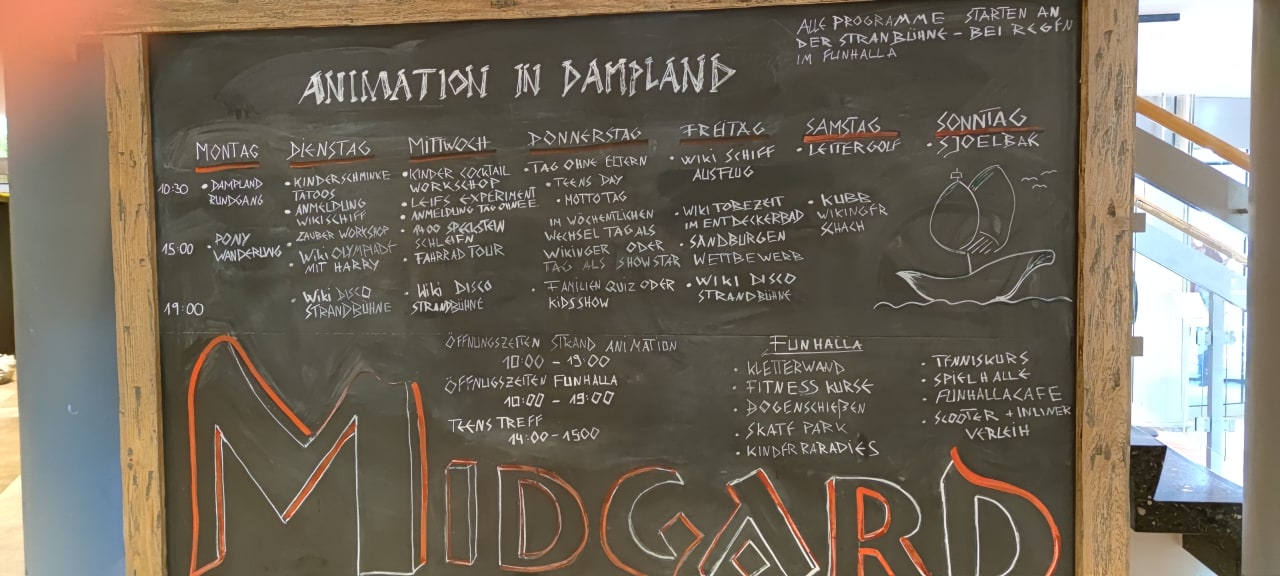 ALLE PROGRAMME STARTEN AN
DER STRANBÜHNE - BEI REGEN
IM FUNHALLA
ANIMATION IN DAMPLAND
MONTAG
10:30
• DAMPLAND
RUNDGANG
15:00
• PONY
WANDERUNG
19:00
DIENSTAG
• KINDERSCHMINKE
TATOOS
• ANMELDUNG
WIKI SCHIFF
ZAUBER WORKSHOP
• WIKI OLYMPIADE
MIT HARRY
• WIKI DISCO
STRANDBÜHNE
MITTWOCH
• KINDER COCKTAIL
WORKSHOP
• LEIFS EXPERIMENT
• ANMELDUNG TAG OHNE E.
• 14:00 SPECKSTEIN
SCHLEIFEN
• FAHRRAD TOUR
• WIKI DISCO
STRANDBÜHNE
DONNERSTAG
• TAG OHNE ELTERN
• TEENS DAY
• MOTTO TAG
IM WÖCHENTLICHEN
WECHSEL TAG ALS
WIKINGER ODER
TAG ALS SHOWSTAR
• FAMILIEN QUIZ ODER
KIDSSHOW
FREITAG
• WIKI SCHIFF
AUSFLUG
• WIKI TOBEZEIT
IM ENTDECKERBAD
• SANDBURGEN
WETTBEWERB
• WIKI DISCO
STRANDBÜHNE
SAMSTAG
• LEITERGOLF
• KUBB
WIKINGER
SCHACH
SONNTAG
• SJOELBAK
ÖFFNUNGSZEITEN STRAND ANIMATION
10:00 - 19:00
ÖFFNUGSZEITEN FUNHALLA
10:00 - 19:00
TEENS TREFF
14:00-1500
FUNHALLA
• KLETTERWAND
• FITNESS KURSE
• BOGENSCHIEßEN
• SKATE PARK
• KINDERPARADIES
• TENNISKURS
• SPIELHALLE
• FUNHALLACAFE
• SCOOTER + INLINER
VERLEIH
MIDGARD